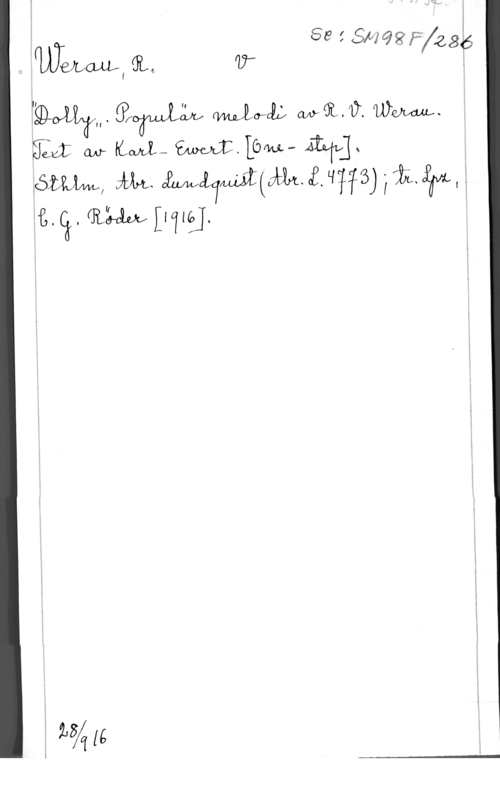 Se: SM98F/286
Werau, R. V
"Dolly". Populär melodi av R. V. Werau.
Text av Karl-Ewert. [One-step].
Sthlm, Abr. Lundquist (Abr. L. 4773); tr. Lpz,
C. G. Röder [1916].
28/9 16